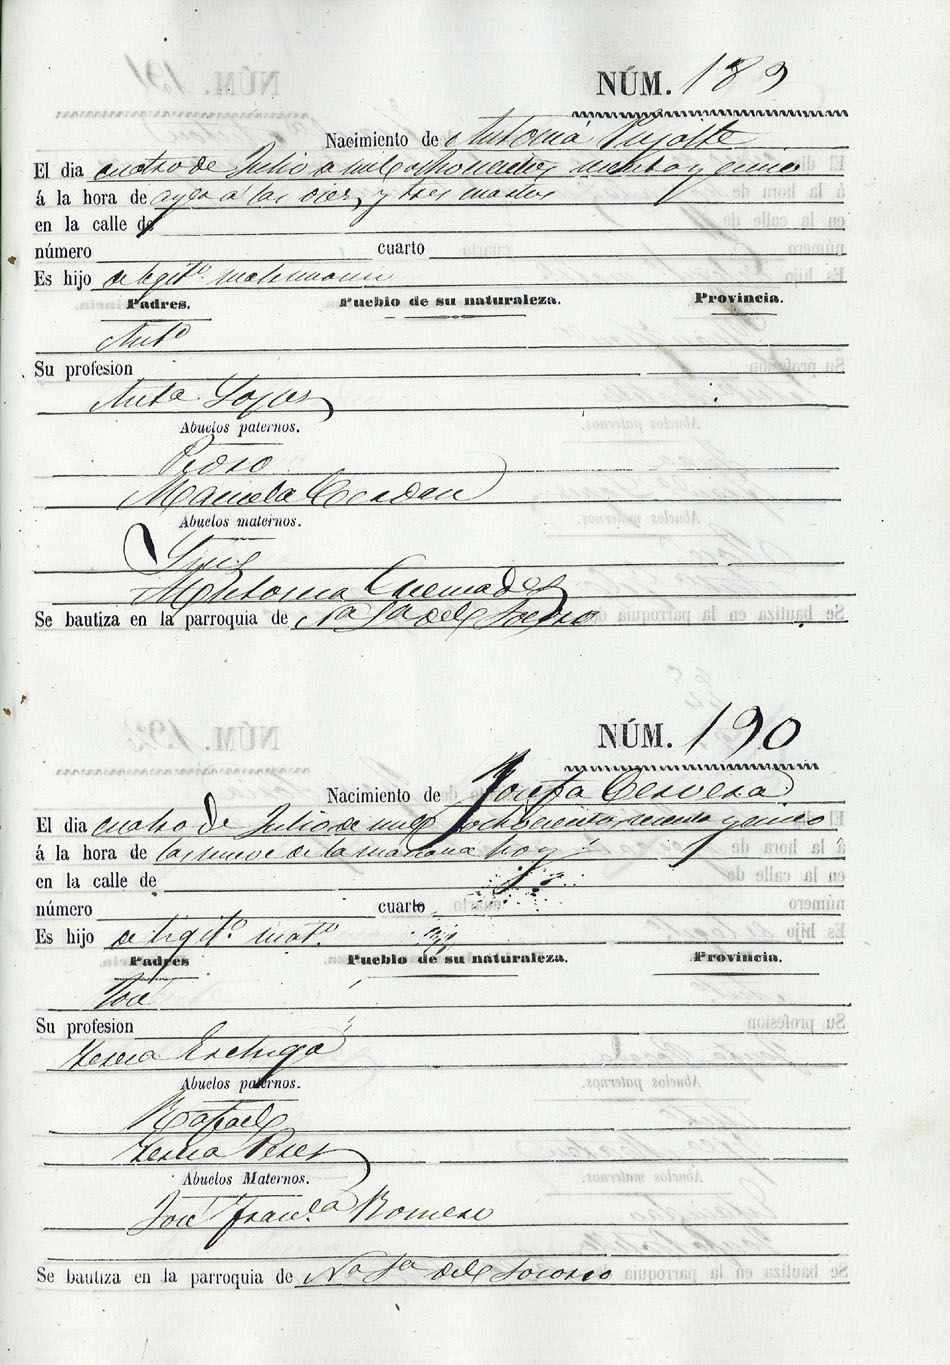 NÚM. 189
Nacimiento de Antonia
El dia cuatro de Julio de mil ochocientos y cinco
á la hora de ayer á las diez y tres cuartos
en la calle de
número cuarto
Es hijo de legit.º matrimonio
Padres. Pueblo de su naturaleza. Provincia.
Ant.º
Su profesion
Ant.a
Abuelos paternos.
Pedro
Manuela Cerdan
Abuelos maternos.
Luis
Antonia
Se bautiza en la parroquia de Na Sa del Socorro
NÚM. 190
Nacimiento de Josefa Cervera
El dia cuatro de Julio de mil ochocientos y cinco
á la hora de las nueve de la mañana hoy
en la calle de
número cuarto
Es hijo de legit.º mat.º
Padres Pueblo de su naturaleza. Provincia.
José
Su profesion
Teresa
Abuelos paternos.
Rafael
Teresa Perez
Abuelos Maternos.
José Fran.ca Romero
Se bautiza en la parroquia de Na Sa del Socorro